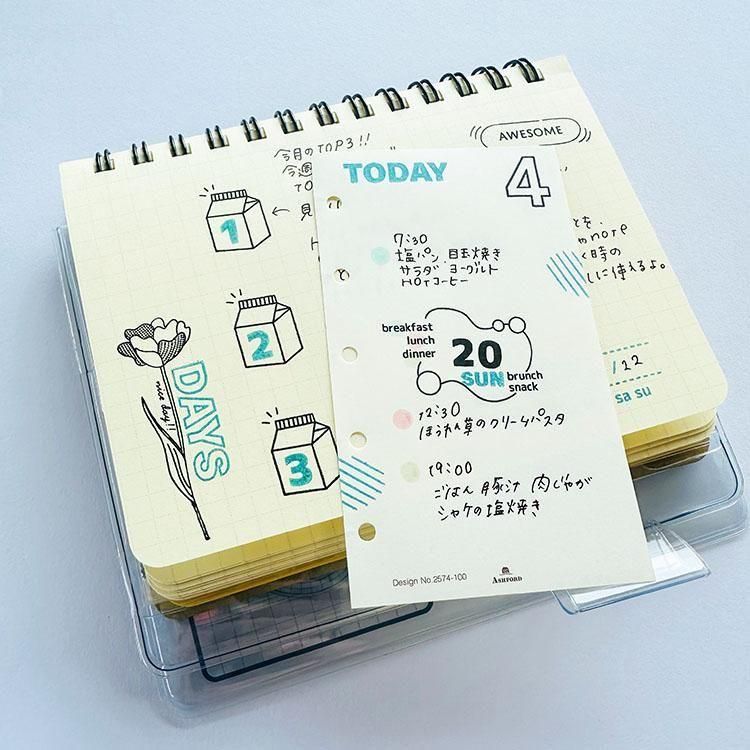 今月のTOP3!!
今週
TO
1
← 見
2
3
DAYS
nice day!!
AWESOME
とを、
more
く時の
しに使えるよ。
/22
sa su
TODAY
4
7:30
塩パン 目玉焼き
サラダ ヨーグルト
HOTコーヒー
breakfast
lunch
dinner
20
SUN
brunch
snack
12:30
ほうれん草のクリームパスタ
19:00
ごはん 豚汁 肉じゃが
シャケの塩焼き
Design No.2574-100
ASHFORD